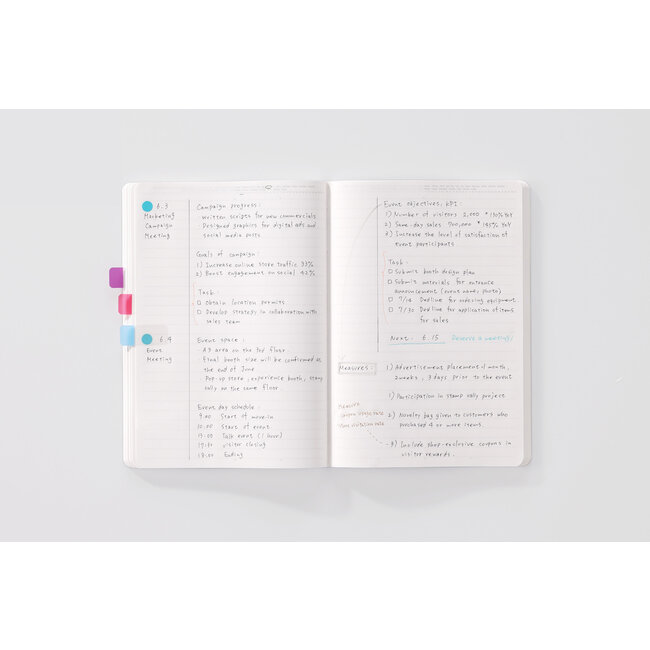 6.3
Marketing
Campaign
Meeting
Campaign progress:
- Written scripts for new commercials
- Designed graphics for digital ads and
social media posts
Goals of campaign:
1) Increase online store traffic 33%
2) Boost engagement on social 42%
Task:
Obtain location permits
Develop strategy in collaboration with
sales team
6.4
Event
Meeting
Event space:
- A3 area on the top floor
- Final booth size will be confirmed at
the end of June
Pop-up store, experience booth, stamp
rally on the same floor.
Event day schedule:
9:00 Start of move-in
10:00 Start of event
Talk event (1 hour)
visitor closing
18:00 Ending
Event objectives, KPI:
1) Number of visitors 2,000 * 130% YoY
2) Same-day sales 900,000 * 145% YoY
3) Increase the level of satisfaction of
event participants
Task:
Submit booth design plan
Submit materials for entrance
announcement (event name, photo)
7/18 Dedline for ordering equipment
7/30 Dedline for application of items
for sales
Next: 6.15
Measures:
1) Advertisement placement 1 month,
2 weeks, 3 days prior to the event
1) Participation in stamp rally project
2) Novelty bag given to customers who
purchased 4 or more items.
3) Include shop-exclusive coupons in
visitor rewards.
Measure
coupon usage rate
store visitation rate